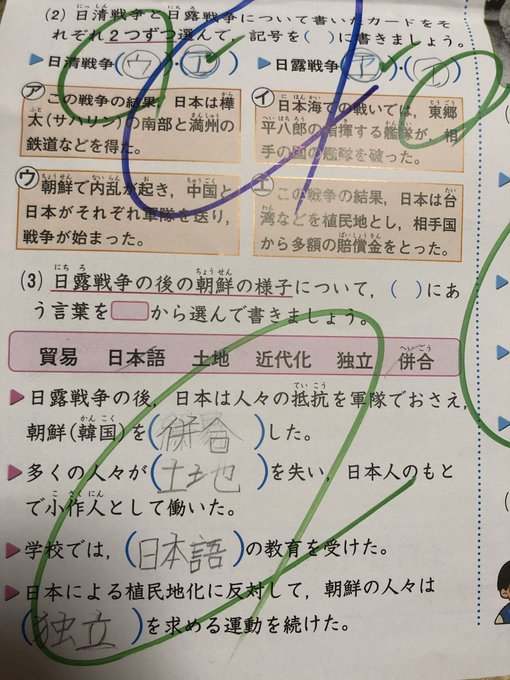 (2) 日清戦争と日露戦争について書いたカードをそ
れぞれ2つずつ選んで，記号を( )に書きましょう。
▶日清戦争(ウ)・(エ) ▶日露戦争(ア)・(イ)
ア この戦争の結果，日本は樺
太(サハリン)の南部と満州の
鉄道などを得た。
イ 日本海での戦いでは，東郷
平八郎の指揮する艦隊が，相
手の国の艦隊を破った。
ウ 朝鮮で内乱が起き，中国と
日本がそれぞれ軍隊を送り，
戦争が始まった。
エ この戦争の結果，日本は台
湾などを植民地とし，相手国
から多額の賠償金をとった。
(3) 日露戦争の後の朝鮮の様子について，( )にあ
う言葉を から選んで書きましょう。
貿易 日本語 土地 近代化 独立 併合
▶日露戦争の後，日本は人々の抵抗を軍隊でおさえ，
朝鮮(韓国)を(併合)した。
▶多くの人々が(土地)を失い，日本人のもと
で小作人として働いた。
▶学校では，(日本語)の教育を受けた。
▶日本による植民地化に反対して，朝鮮の人々は
(独立)を求める運動を続けた。